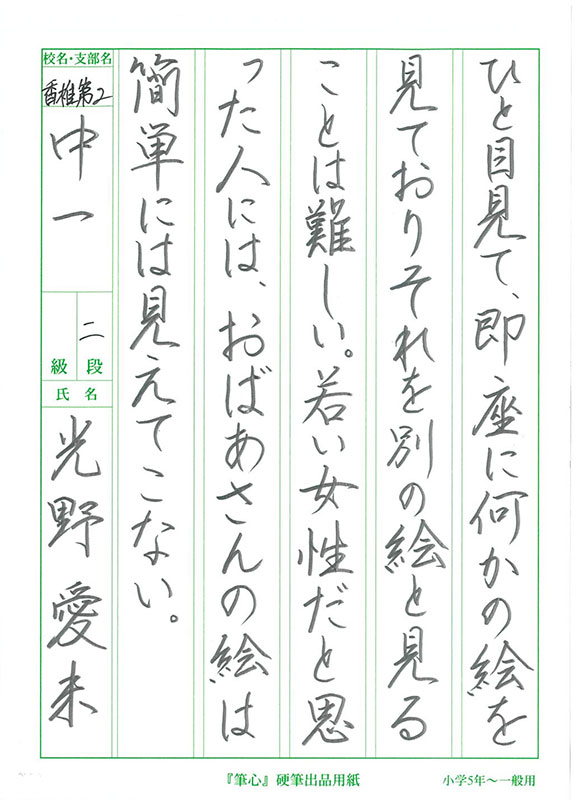 ひと目見て、即座に何かの絵を
見ておりそれを別の絵と見る
ことは難しい。若い女性だと思
った人には、おばあさんの絵は
簡単には見えてこない。
校名・支部名
香椎第2
中一
二
級 段
氏 名
光野愛未
『筆心』硬筆出品用紙
小学5年～一般用